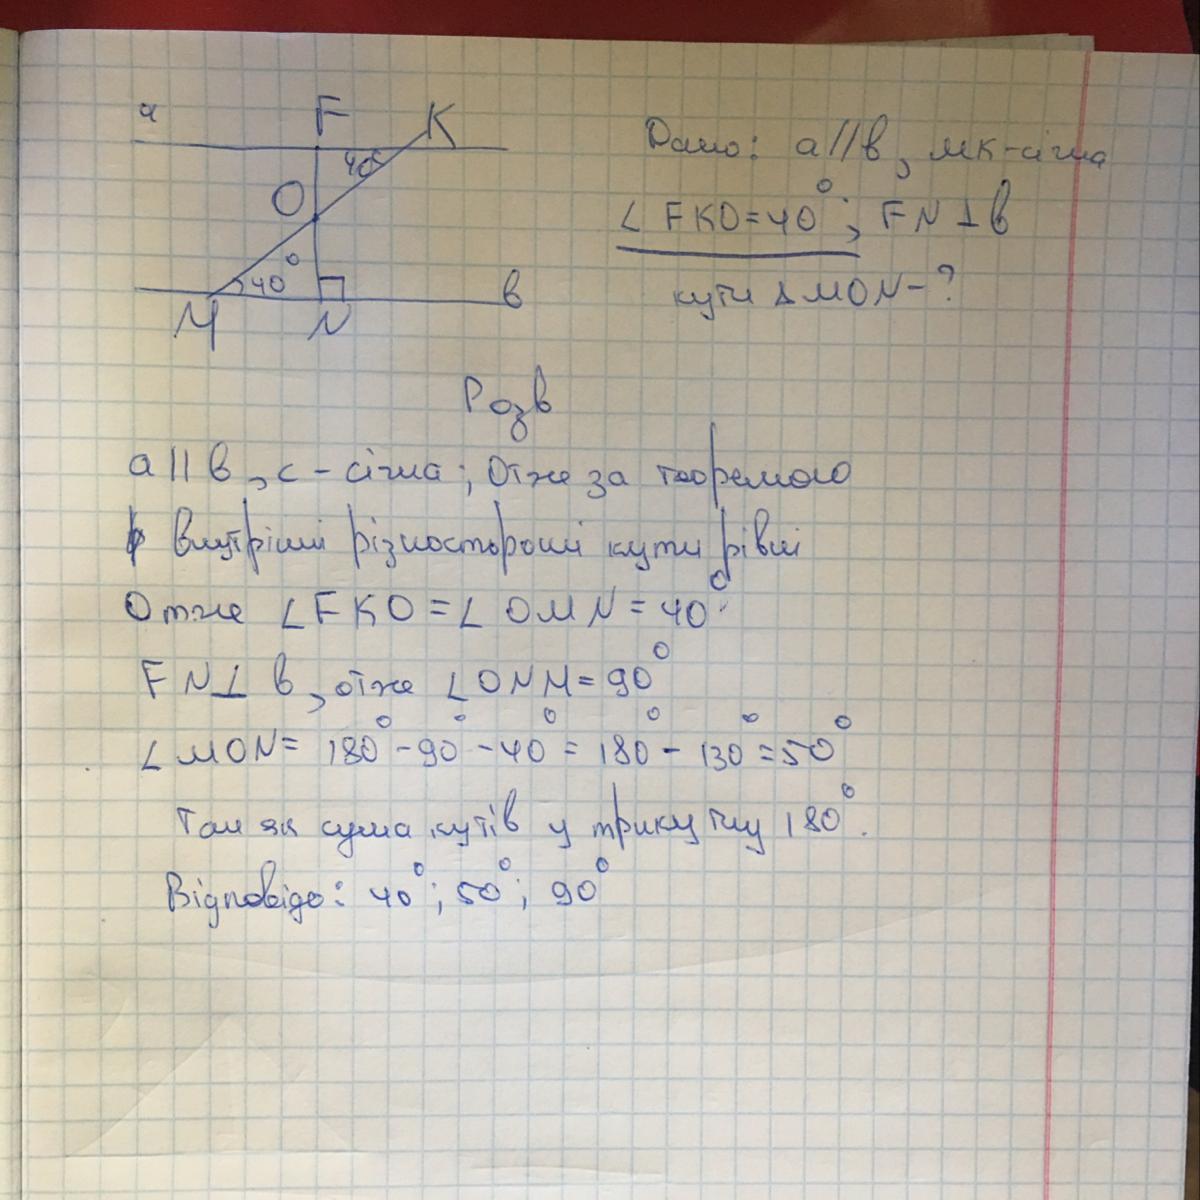 a F K
40°
O
40°
M N в
Дано: a//в, МК-січна
∠FKO=40°; FN⊥в
кути ΔMON-?
Розв
a||в, с-січна; Отже за теоремою
внутрішні різносторонні кути рівні
Отже ∠FKO=∠OMN=40°
FN⊥в, отже ∠ONM=90°
∠MON= 180°-90°-40°=180°-130°=50°
Так як сума кутів у трикутнику 180°.
Відповідь: 40°; 50°; 90°